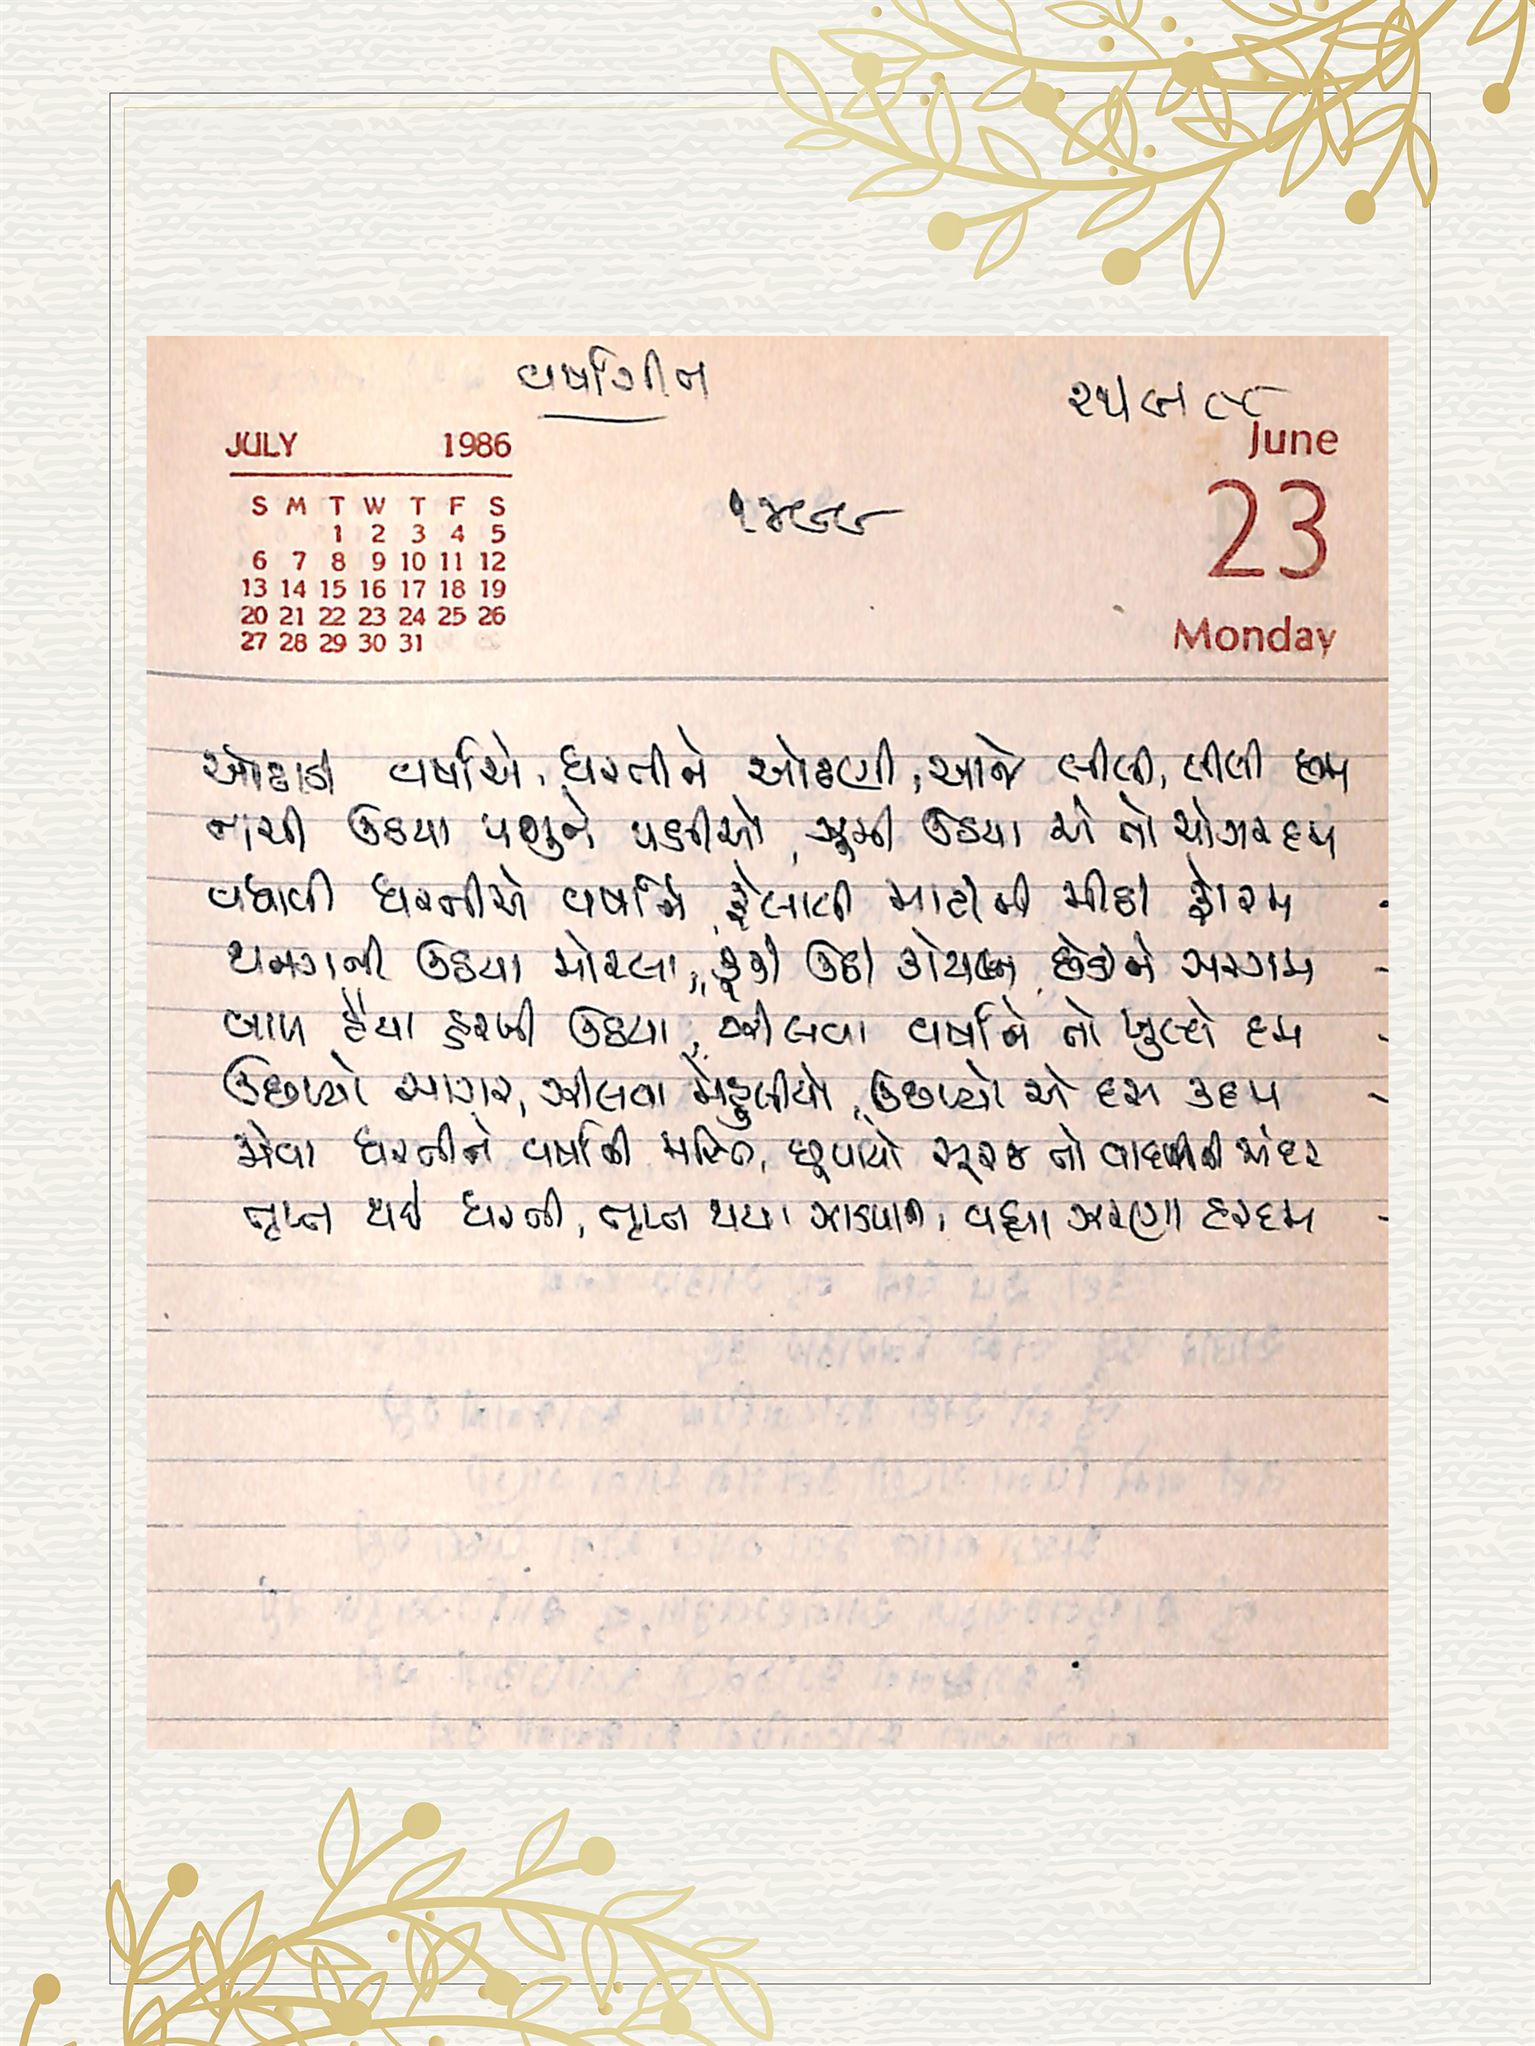 વર્ષાગીત
JULY 1986
S M T W T F S
1 2 3 4 5
6 7 8 9 10 11 12
13 14 15 16 17 18 19
20 21 22 23 24 25 26
27 28 29 30 31
June
23
Monday
ઓઢાડી વર્ષાએ, ધરતીને ઓઢણી, આજે લીલી, લીલી છમ
નાચી ઉઠયા પશુને પક્ષીઓ, ઝૂમી ઉઠયા એ તો ચોગરદમ
વધાવી ધરતીએ વર્ષાને, ફેલાવી માટીની મીઠી ફોરમ
થનગની ઉઠયા મોરલા, કૂકી ઉઠી કોયલ છેડીને સરગમ
બાળ હૈયા હરખી ઉઠયા, ઝીલવા વર્ષાને તો ખુલ્લે દમ
ઉછળ્યો સાગર, ઝીલવા મેહુલીયો, ઉછળ્યો એ દસ કદમ
મેવા ધરતીને વર્ષાની મસ્તિ, છૂપાયો સૂરજ તો વાદળની અંદર
તૃપ્ત થઈ ધરતી, તૃપ્ત થયા ઝાડપાન, વહ્યા ઝરણા હરદમ